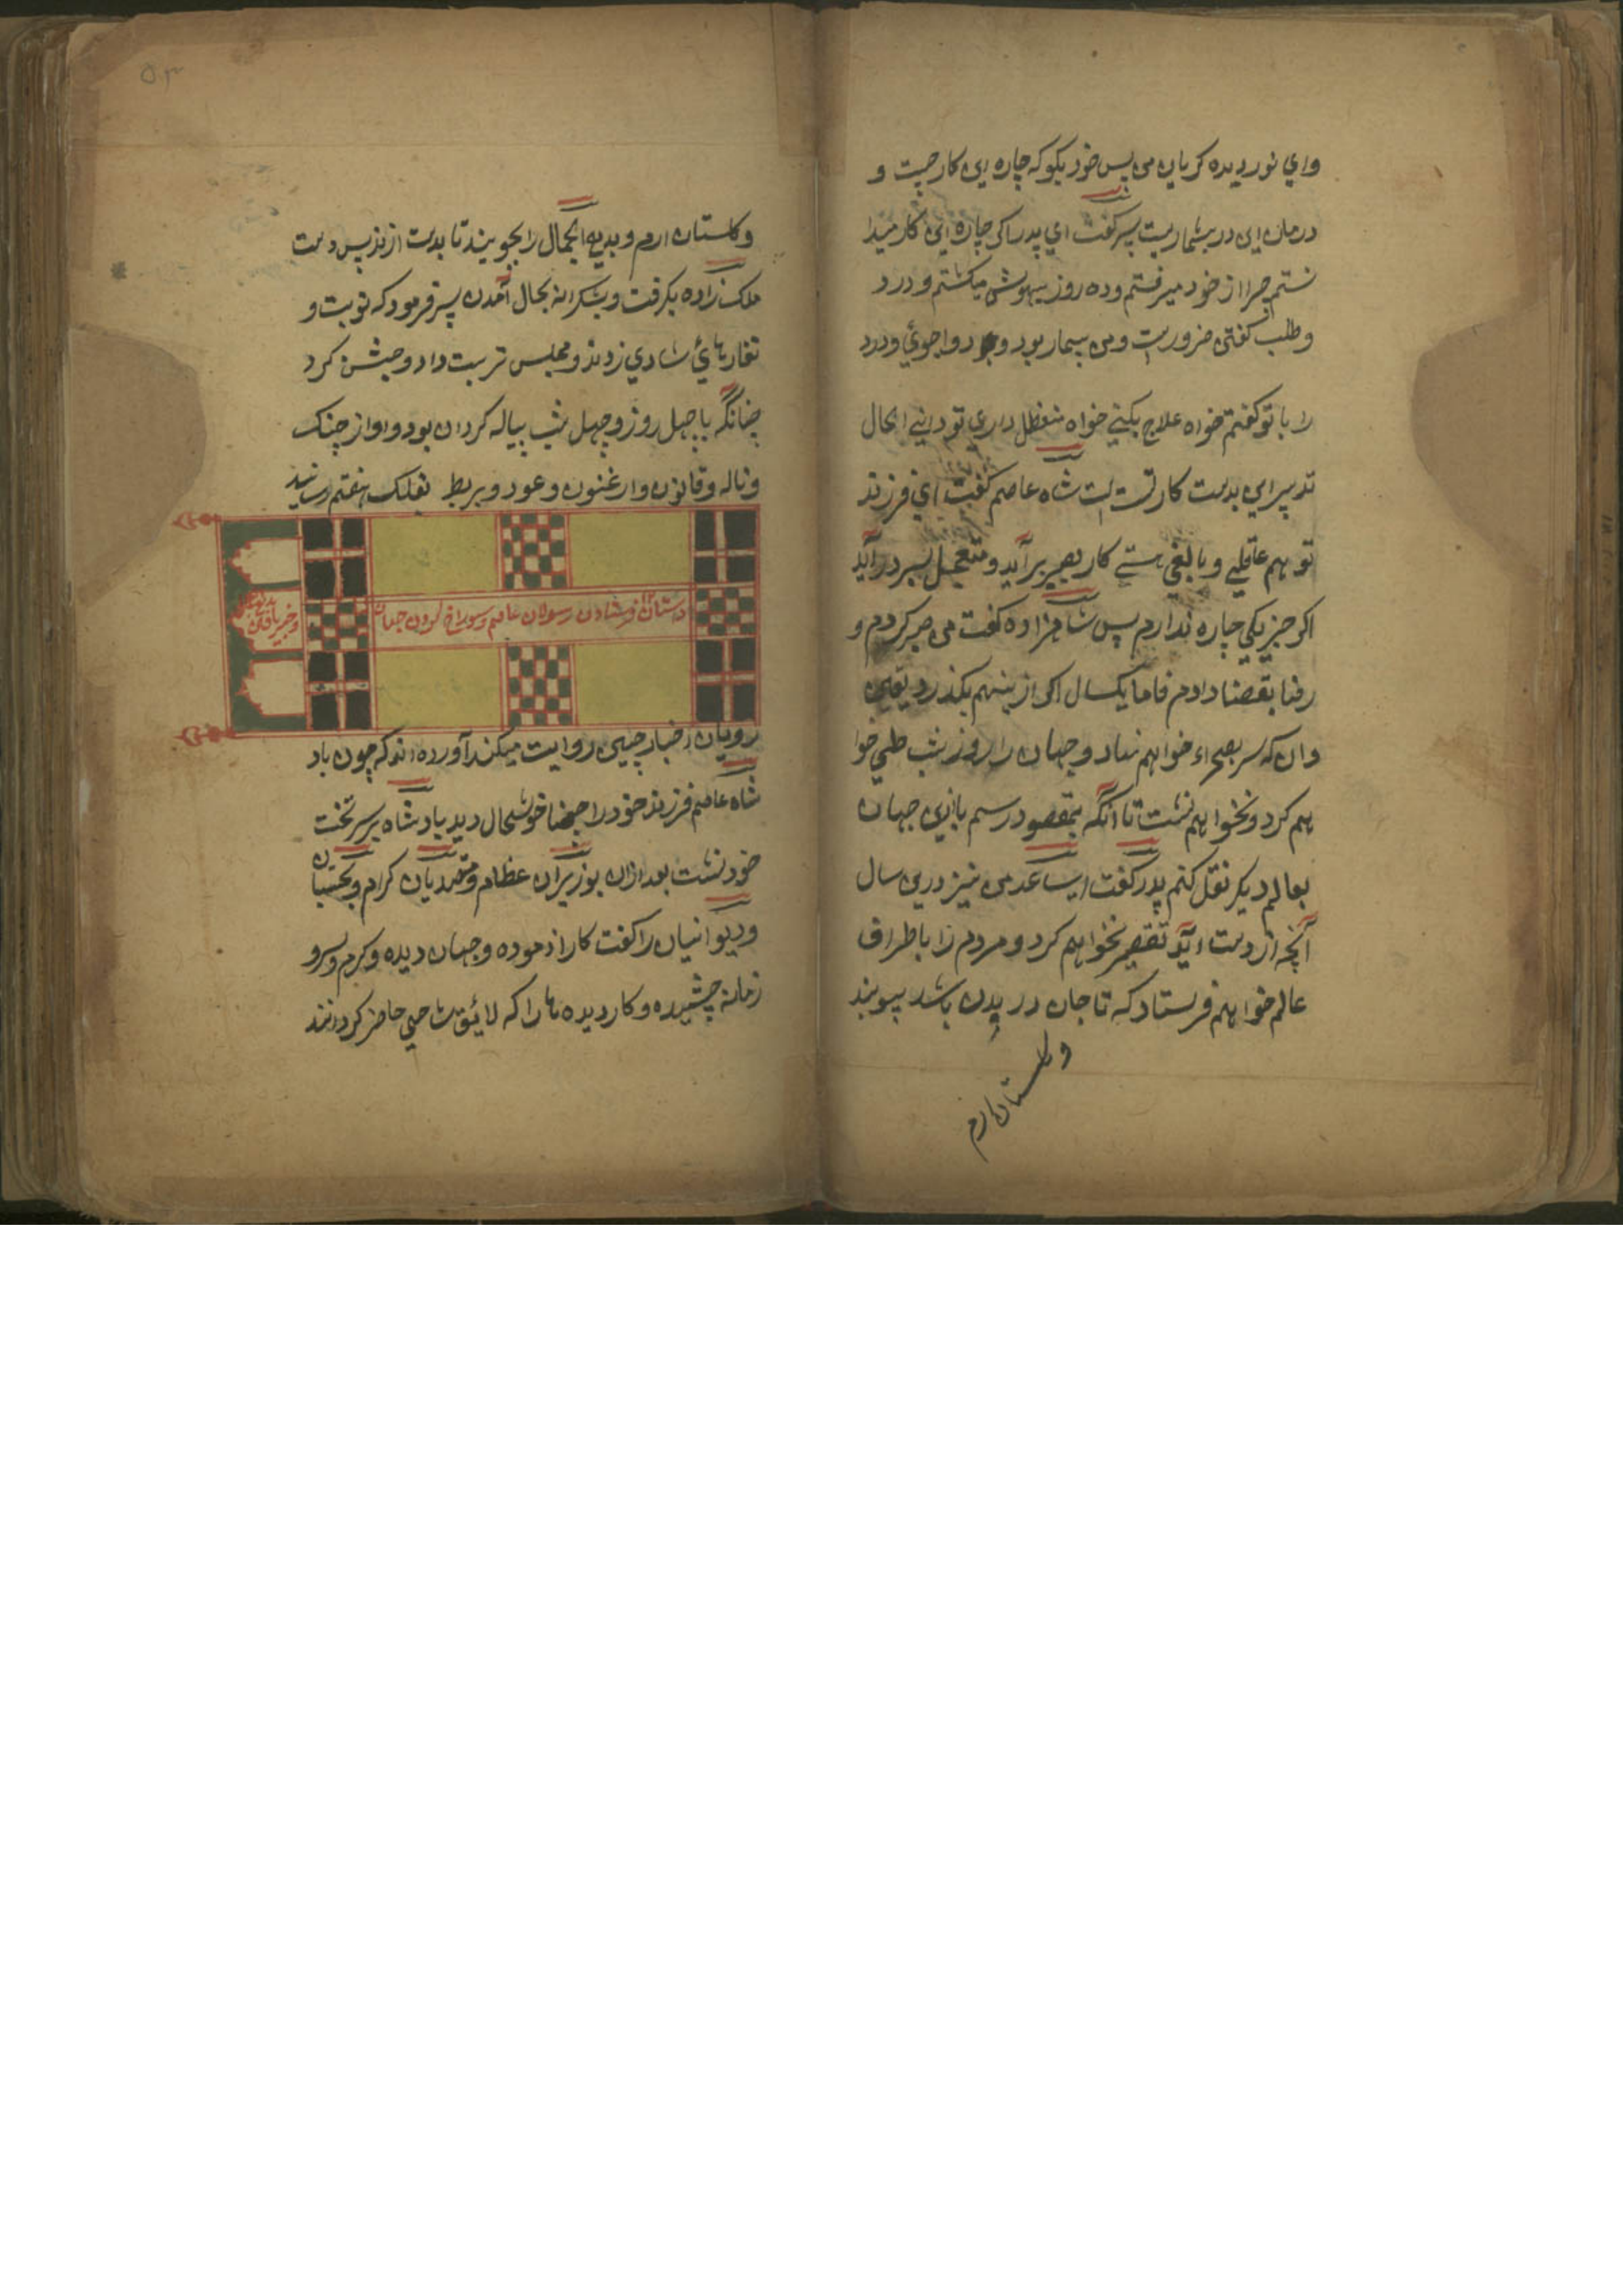 واي نور دیده کریان من پس خود بکو که چاره این کار چیست و
درمان این درد بیشمار چیست پسر کفت اي پدر اکر چاره این کار میدا
نستم چرا از خود میرفتم و ده روز بیهوش میکشتم و درد
وطلب کفتن ضرورست ومن بیمار بود و دواجوئي ودرد
را با تو کفتم خواه علاج بکني خواه معطل داري تو داني الحال
تدبیر این بدست کار تست شاه عاصم کفت اي فرزند
تو هم عاقلي و بالغي هستي کار بصبر برآید و متعجل بسر درآید
اکر جز یکي چاره ندارم پس شاهزاده کفت من صبر کردم و
رضا بقضا دادم فاما یکسال اکر ازینهم بکذرد یقین
دان که سر بصحراء خواهم نهاد و جهان را روز شب طي خوا
هم کرد و نخواهم نشست تا آنکه بمقصود رسم یا ازین جهان
بعالم دیکر نقل کنم پدر کفت ای ساعد من نیز درین سال
آنچه از دست آید تقصیر نخواهم کرد و مردم را باطراف
عالم خواهم فرستاد که تا جان در بدن باشد بپویند
و کلستان ارم
۵۳
و کلستان ارم و بدیع الجمال را بجویند تا بدست ارند پس دست
ملک زاده بکرفت و بشکرانه بحال آمدن پسر فرمود که نوبت و
نقارهائ شادي زدند و مجلس ترتیب داد و جشن کرد
چنانکه تا چهل روز و چهل شب پیاله کردان بود و اواز چنک
و ناله و قانون و ارغنون و عود و بربط بفلک هفتم رسانید
داستان ۱۲ فرستادن رسولان عاصم و سوراخ کردن جهان
و خبر یافتن
رویان اخبار چنین روایت میکند آورده اند که چون باد
شاه عاصم فرزند خود را خوشحال دید پادشاه بر سر تخت
خود نشست بعد ازان بوزیران عظام و متصدیان کرام و بخشیان
و دیوانیان را کفت کار ازموده و جهان دیده و کرم و سرد
زمانه چشیده و کار دیده ها را که لائق شاهي حاضر کردانند